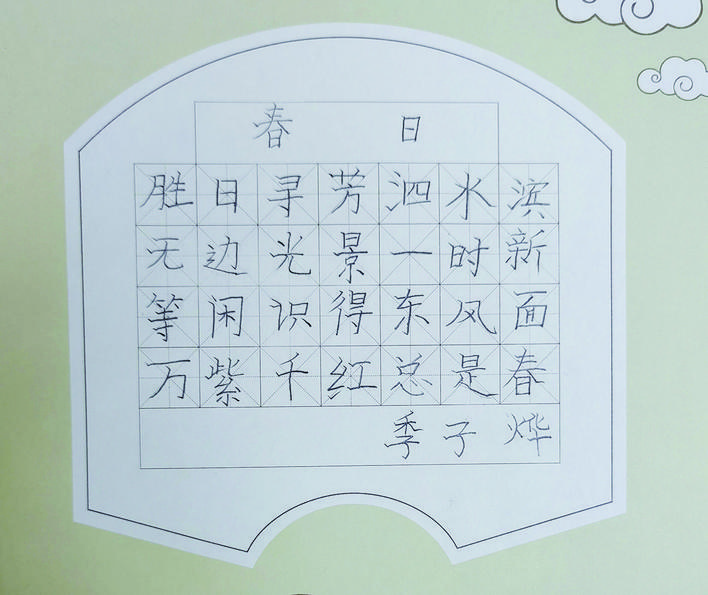 春日
胜日寻芳泗水滨
无边光景一时新
等闲识得东风面
万紫千红总是春
季子烨